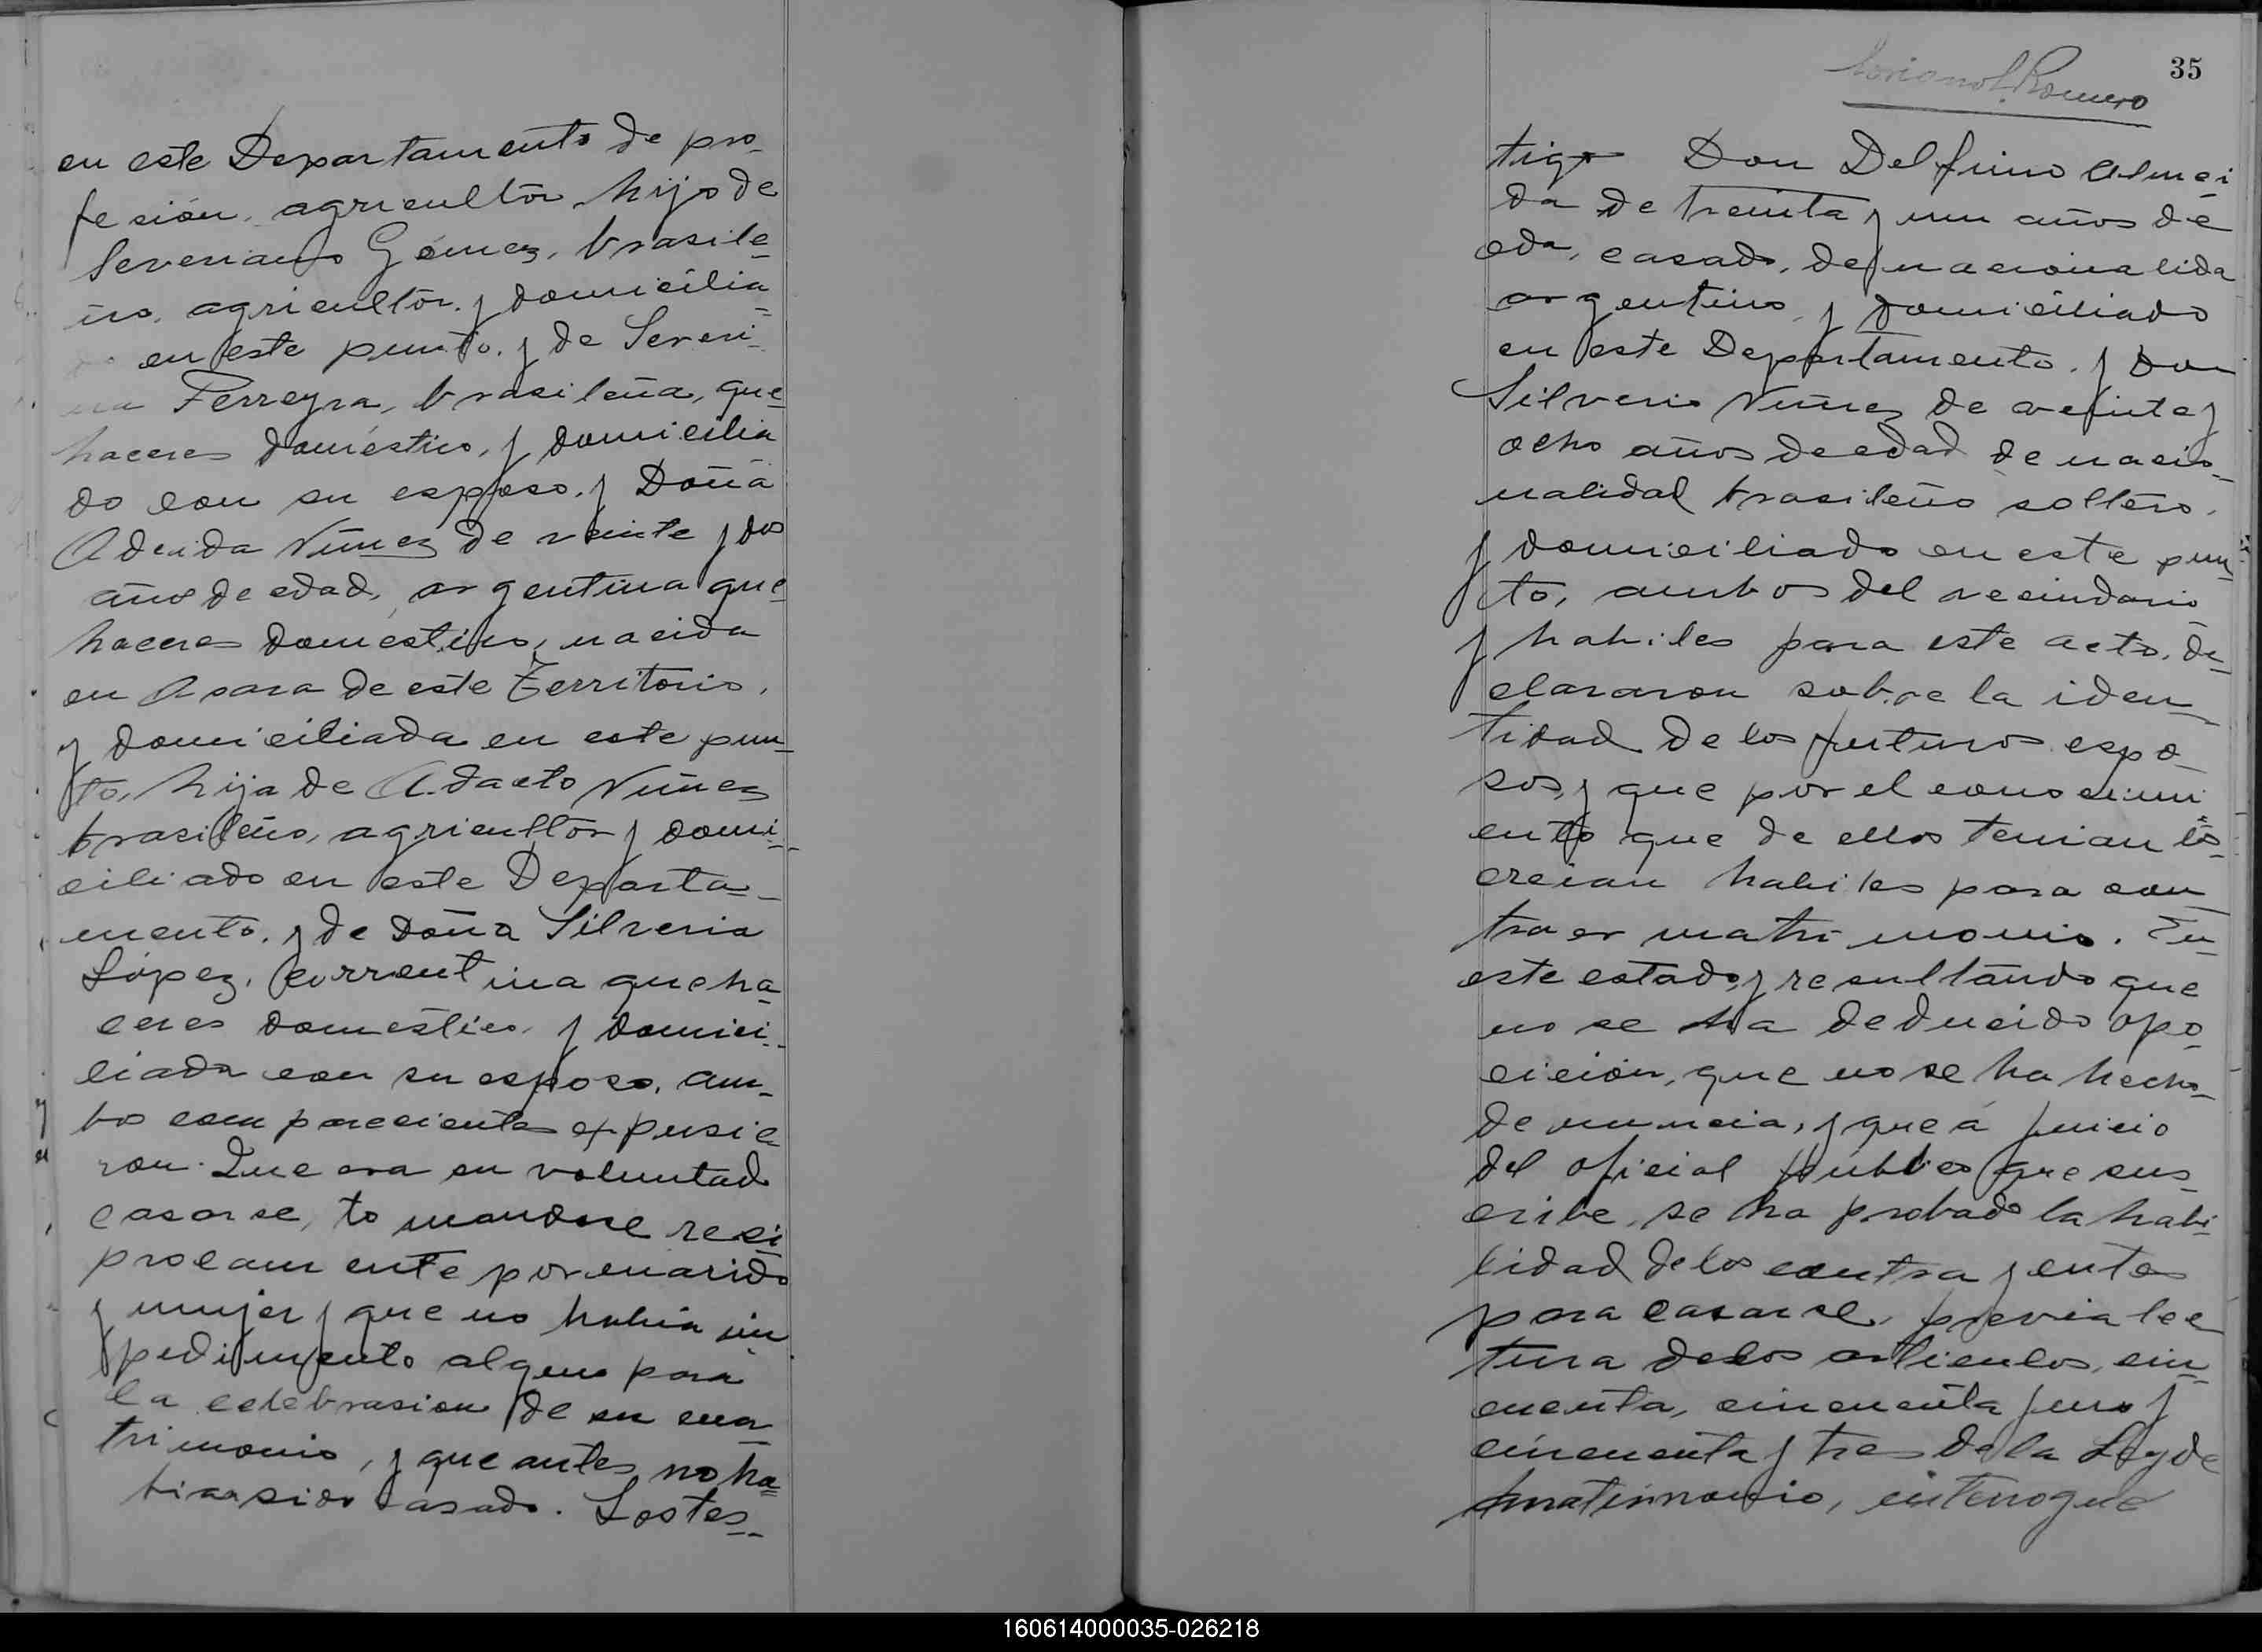 en este Departamento de pro-
fesión, agricultor hijo de
Severiano Gómez, brasile-
ño, agricultor, y domicilia-
do en este punto, y de Severi-
na Ferreyra, brasileña, que-
haceres doméstico, y domicilia
do con su esposo, y Doña
Adeida Núnez de veinte y dos
año de edad, argentina que-
haceres domestico, nacida
en Asara de este Territorio,
y domiciliada en este pun-
to, hija de Adacto Núnez
brasileño, agricultor y domi-
ciliado en este Departa-
mento, y de doña Silveria
López, Correntina queha-
ceres domestico, y domici-
liada con su esposo, am-
bo comparecientes expusie
ron: Que era su voluntad
casarse, tomandose reci-
procamente por marido
y mujer y que no había im
pedimento alguno para
la celebrasion de su ma-
trimonio, y que antes no ha-
bian sido casado. Los tes-
35
Romero
tigo Don Delfino Almei
da de treinta y un años de
eda, casado, de nacionalida
argentino y domiciliado
en este Departamento, y Don
Silverio Núnez de veinte y
ocho años de edad de nacio-
nalidad brasileño soltero,
y domiciliado en este pun-
to, ambos del vecindario
y habiles para este acto, de-
clararon sobre la iden-
tidad de los futuros espo-
sos, y que por el conosimi-
ento que de ellos tenian los
creian habiles para con-
traer matrimonio. En
este estado, y resultando que
no se ha deducido opo-
cición, que no se ha hecho
denuncia, y que á juicio
del oficial público que sus-
cribe, se ha probado la habi-
lidad de los contrayentes
para casarse, previa lec
tura de los articulos, cin-
cuenta, cincuenta y uno y
cincuenta y tres de la Ley de
matrimonio, interrogué